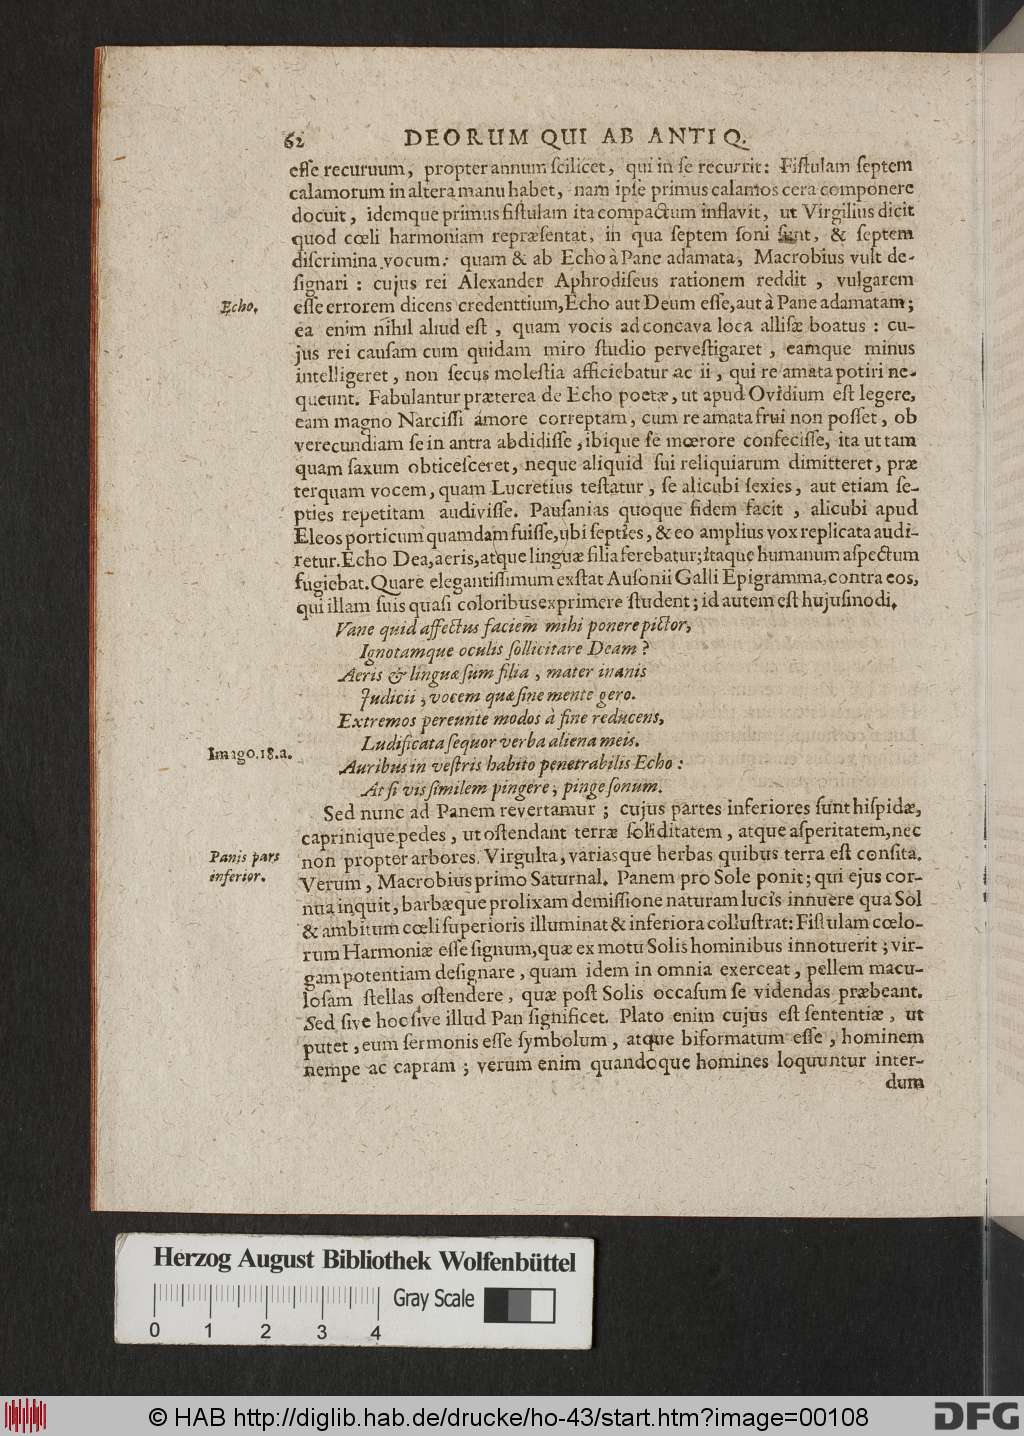 62 DEORUM QUI AB ANTIQ.
esse recuruum, propter annum scilicet, qui in se recurrit: Fistulam septem
calamorum in altera manu habet, nam ipse primus calamos cera componere
docuit, idemque primus fistulam ita compactum inflavit, ut Virgilius dicit
quod cœli harmoniam repræsentat, in qua septem soni sunt, & septem
discrimina vocum: quam & ab Echo à Pane adamata, Macrobius vult de-
signari: cujus rei Alexander Aphrodiseus rationem reddit, vulgarem
Echo.
esse errorem dicens credenttium, Echo aut Deum esse, aut à Pane adamatam;
ea enim nihil aliud est, quam vocis ad concava loca allisæ boatus: cu-
jus rei causam cum quidam miro studio pervestigaret, eamque minus
intelligeret, non secus molestia afficiebatur ac ii, qui re amata potiri ne-
queunt. Fabulantur præterea de Echo poetæ, ut apud Ovidium est legere,
eam magno Narcissi amore correptam, cum re amata frui non posset, ob
verecundiam se in antra abdidisse, ibique se mœrore confecisse, ita ut tam
quam saxum obticesceret, neque aliquid sui reliquiarum dimitteret, præ
terquam vocem, quam Lucretius testatur, se alicubi sexies, aut etiam se-
pties repetitam audivisse. Pausanias quoque fidem facit, alicubi apud
Eleos porticum quamdam fuisse, ubi septies, & eo amplius vox replicata audi-
retur. Echo Dea, aeris, atque linguæ filia ferebatur; itaque humanum aspectum
fugiebat. Quare elegantissimum exstat Ausonii Galli Epigramma, contra eos,
qui illam suis quasi coloribus exprimere student; id autem est hujusmodi.
Vane quid affectus faciem mihi ponere pictor,
Ignotamque oculis sollicitare Deam?
Aeris & linguæ sum filia, mater inanis
Judicii, vocem quæ sine mente gero.
Extremos pereunte modos à fine reducens,
Ludificata sequor verba aliena meis.
Imago. 18. a.
Auribus in vestris habito penetrabilis Echo:
At si vis similem pingere, pinge sonum.
Sed nunc ad Panem revertamur; cujus partes inferiores sunt hispidæ,
caprinique pedes, ut ostendant terræ soliditatem, atque asperitatem, nec
Panis pars
inferior.
non propter arbores. Virgulta, variasque herbas quibus terra est consita.
Verum, Macrobius primo Saturnal. Panem pro Sole ponit; qui ejus cor-
nua inquit, barbæque prolixam demissione naturam lucis innuere qua Sol
& ambitum cœli superioris illuminat & inferiora collustrat: Fistulam cœlo-
rum Harmoniæ esse signum, quæ ex motu Solis hominibus innotuerit; vir-
gam potentiam designare, quam idem in omnia exerceat, pellem macu-
losam stellas ostendere, quæ post Solis occasum se videndas præbeant.
Sed sive hoc sive illud Pan significet. Plato enim cujus est sententiæ, ut
putet, eum sermonis esse symbolum, atque biformatum esse, hominem
nempe ac capram; verum enim quandoque homines loquuntur inter-
dum
Herzog August Bibliothek Wolfenbüttel
Gray Scale
0 1 2 3 4
© HAB http://diglib.hab.de/drucke/ho-43/start.htm?image=00108
DFG